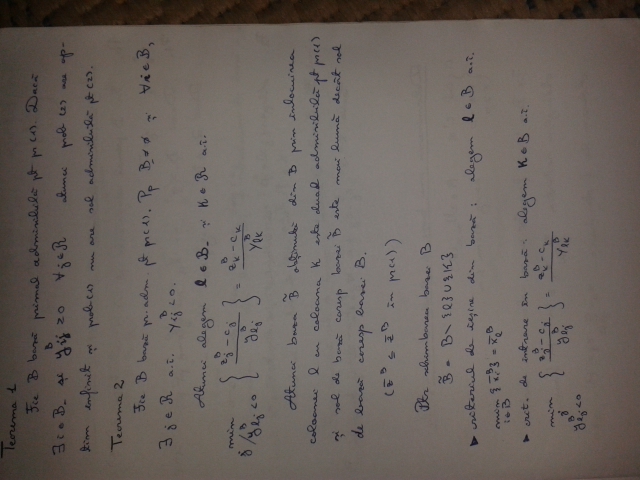 Teorema 1
Fie B bază primal admisibilă pt pr(1). Dacă
∃ i ∈ B_ și y_ij^B ≥ 0 ∀j∈R atunci prob(2) are op-
tim infinit și prob(1) nu are sol admisibilă pt (2).
Teorema 2
Fie B bază pr. adm. pt pr(1). Pp B_ ≠ ∅ și ∀i∈B,
∃ j∈R a.î. y_ij^B < 0.
Atunci alegem l∈B_ și k∈R a.î.
min j/y_lj^B<0 { (z_j^B - c_j) / y_lj^B } = (z_k^B - c_k) / y_lk^B
Atunci baza B̃ obținută din B prin înlocuirea
coloanei l cu coloana k este dual admisibilă pt pr(1)
și sol de bază coresp bazei B̃ este mai bună decât sol
de bază coresp bazei B.
(z̄^B ≤ z̄^B în pr(1))
Ptr schimbarea bazei B
B̃ = B \ {l} ∪ {k}
▶ criteriul de ieșire din bază: alegem l∈B a.î.
min i∈B {x̄_i^B} = x̄_l^B
▶ crit. de intrare în bază: alegem k∈B a.î.
min j y_lj^B<0 { (z_j^B - c_j) / y_lj^B } = (z_k^B - c_k) / y_lk^B